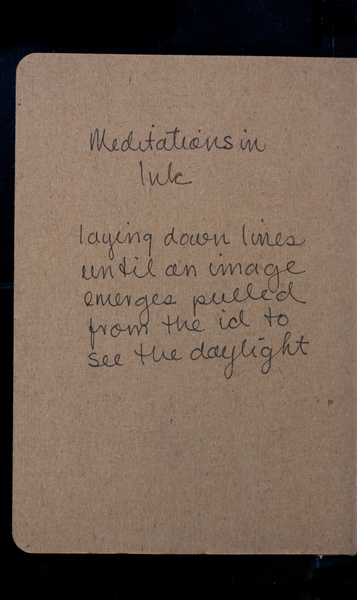 Meditations in
Ink
laying down lines
until an image
emerges pulled
from the id to
see the daylight